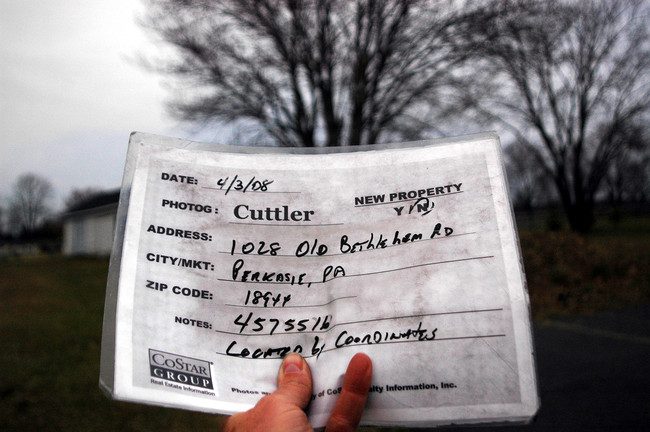 DATE: 4/3/08
NEW PROPERTY
PHOTOG: Cuttler Y/N
ADDRESS: 1028 Old Bethlehem RD
CITY/MKT: PERKASIE, PA
ZIP CODE: 18944
NOTES: 4575516
LOCATED by COORDINATES
COSTAR
GROUP
Real Estate Information
Photos of CoStar Realty Information, Inc.